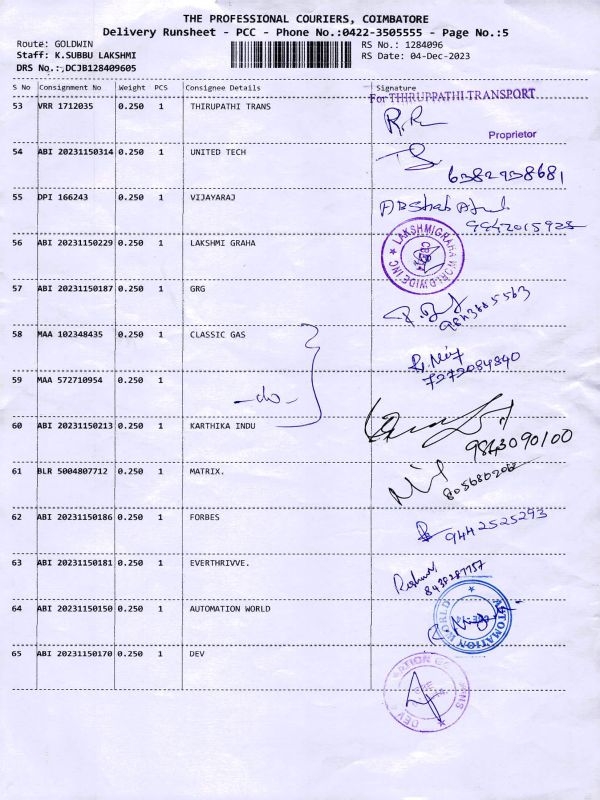 THE PROFESSIONAL COURIERS, COIMBATORE
Delivery Runsheet - PCC - Phone No.:0422-3505555 - Page No.:5
Route: GOLDWIN RS No.: 1284096
Staff: K.SUBBU LAKSHMI RS Date: 04-Dec-2023
DRS No.:,DCJB128409605
S No Consignment No Weight PCS Consignee Details Signature
For THIRUPPATHI TRANSPORT
53 VRR 1712035 0.250 1 THIRUPATHI TRANS
Proprietor
54 ABI 20231150314 0.250 1 UNITED TECH
6382938681
55 DPI 166243 0.250 1 VIJAYARAJ
9842015928
56 ABI 20231150229 0.250 1 LAKSHMI GRAHA
LAKSHMIGRAHA WORLDWIDE INC
CBE
57 ABI 20231150187 0.250 1 GRG
9843685563
58 MAA 102348435 0.250 1 CLASSIC GAS
7272084840
59 MAA 572710954 0.250 1
-do-
60 ABI 20231150213 0.250 1 KARTHIKA INDU
9843090100
61 BLR 5004807712 0.250 1 MATRIX.
62 ABI 20231150186 0.250 1 FORBES
9442525293
63 ABI 20231150181 0.250 1 EVERTHRIVVE.
8438287757
64 ABI 20231150150 0.250 1 AUTOMATION WORLD
AUTOMATION WORLD
65 ABI 20231150170 0.250 1 DEV
DEV